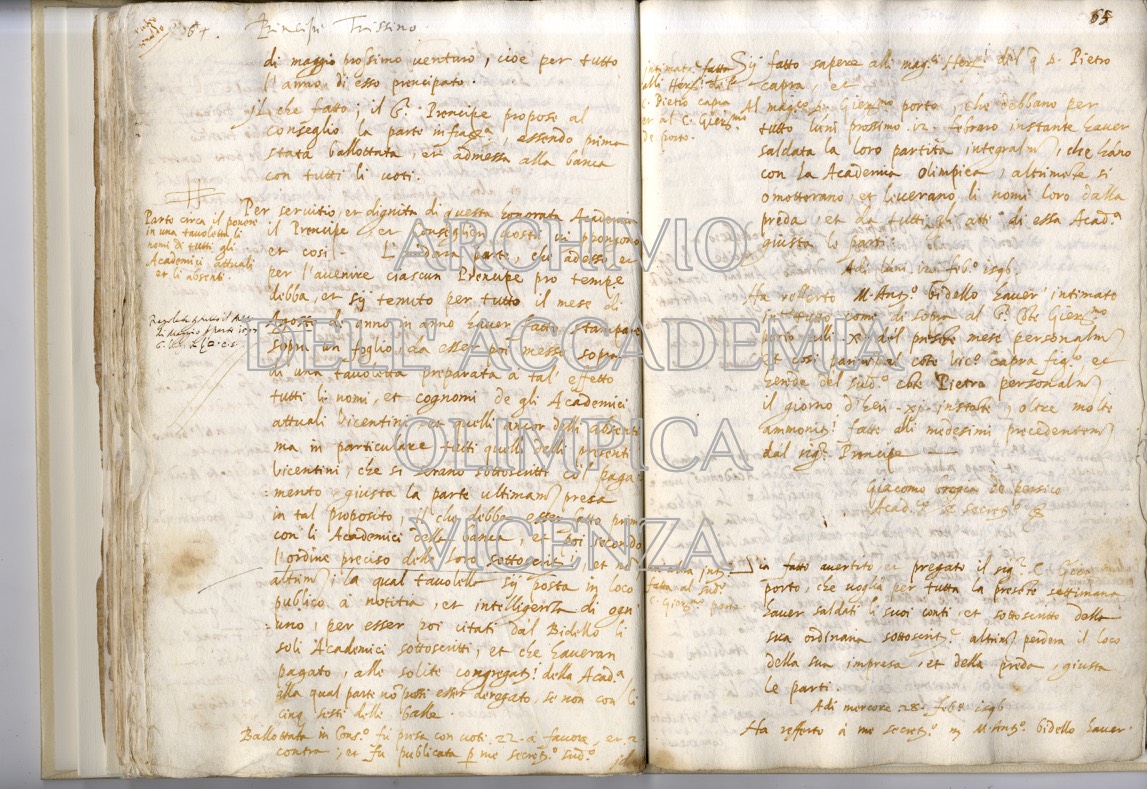 64.
Principe Trissino.
di maggio prossimo venturo, cioè per tutto
l'anno di esso prencipato.
Il che fatto, il S.r Prencipe propose al
conseglio la parte infras.ta, essendo prima
stata ballottata, et admessa alla banca
con tutti li voti.
Parte circa il ponere
in una tavoletta li
nomi di tutti gli
Academici attuali
et li absenti
Per servitio, et dignità di questa honorata Academia
il Prencipe et Conseglieri vostri vi propongono
et così
L'andarà parte, che adesso et
per l'avenire ciascun Prencipe pro tempe
debba, et sij tenuto per tutto il mese di
Agosto di anno in anno haver fatto stampare
sopra un foglio, da esser poi messo sopra
di una tavoletta preparata à tal effetto
tutti li nomi, et cognomi de gli Academici
attuali vicentini, et quelli ancor delli absenti
ma in particulare tutti quelli delli presenti
vicentini, che si serano sottoscritti col paga-
:mento, giusta la parte ultimam. presa
in tal proposito, il che debba esser fatto prima
con li Academici della banca, et poi secondo
l'ordine preciso delle loro sottoscrit., et non
altrim., la qual tavoletta sij posta in loco
publico à notitia, et intelligenza di ogni
:uno, per esser poi citati dal Bidello li
soli Academici sottoscritti, et che haveran
pagato, alle solite congregat.i della Acad.a
alla qual parte nō possi esser deregato, se non con li
cinq sesti delle balle.
Ballottata in Cons.o fu presa con voti. 22. à favore, et. 2
contra, et fu publicata p me secret.o sud.o
65
intimat. fatta
alli Her.i del q.
C. Pietro capra
et al C. Gier.mo
de porto.
Sij fatto sapere alli mag.ci Her.i del q. D. Pietro
capra, et
Al mag.co Gier.mo porto, che debbano per
tutto luni prossimo .12. febraro instante haver
saldata la loro partita integralm., che hāno
con la Academia olimpica, altimēte si
ometterano, et leverano li nomi loro dalla
preda, et da tutti gli atti di essa Acad.a
giusta le parti.
Adi luni 12 feb.o 1596.
Ha refferto M. Ant.o bidello haver intimato
in tutto come di sopra al S.r Cōte Gier.mo
porto alli .xi. del presēte mese personalm.
et così parim. al cōte Lic.o capra fig.lo et
herede del sud.o cōte Pietro personalm.
il giorno d'heri .xi. instāte, oltre molte
ammonit.i fatte alli medesimi precedentem.
dal sig.r Prencipe
Giacomo de persico
Acad.o et secret.o
fatta al sud.o
C. Gier.mo porto
Sia fatto avertito et pregato il sig.r C. Gier.mo
porto, che voglia per tutta la presēte settimana
haver saldati li suoi conti, et sottoscritto della
sua ordinaria sottoscrit.e altrim. perderà il loco
della sua impresa, et della preda, giusta
le parti.
Adi mercore 28. feb.o 1596
Ha refferto à me secret.o M. Ant.o bidello haver
ARCHIVIO
DELL'ACCADEMIA
OLIMPICA
VICENZA